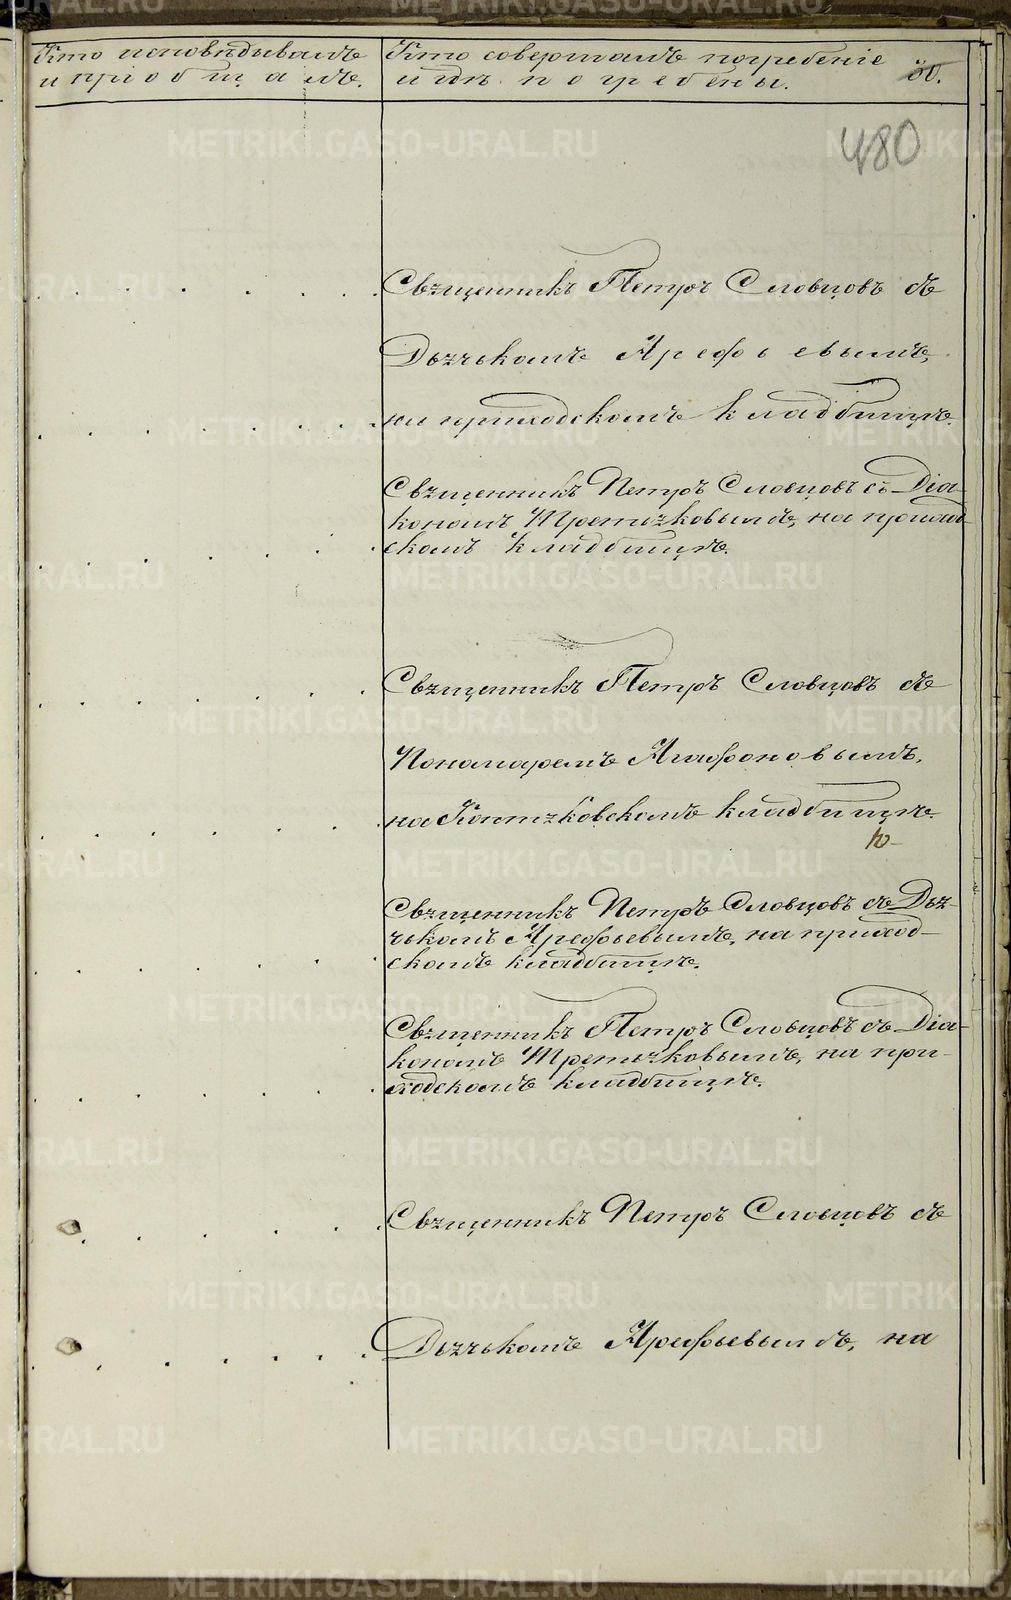 Кто исповѣдывалъ
и пріобщалъ.
Кто совершалъ погребеніе
и гдѣ погребены.
480
Священникъ Петръ Словцовъ съ
Дьячькомъ Арефьевымъ,
на приходскомъ кладбищѣ.
Священникъ Петръ Словцовъ съ Діа-
кономъ Третьяковымъ, на приход-
скомъ кладбищѣ.
Священникъ Петръ Словцовъ съ
Пономаремъ Агафоновымъ,
на кладбищѣ.
Священникъ Петръ Словцовъ съ Дья-
чькомъ Арефьевымъ, на приход-
скомъ кладбищѣ.
Священникъ Петръ Словцовъ съ Діа-
кономъ Третьяковымъ, на при-
ходскомъ кладбищѣ.
Священникъ Петръ Словцовъ съ
Дьячькомъ Арефьевымъ, на
METRIKI.GASO-URAL.RU